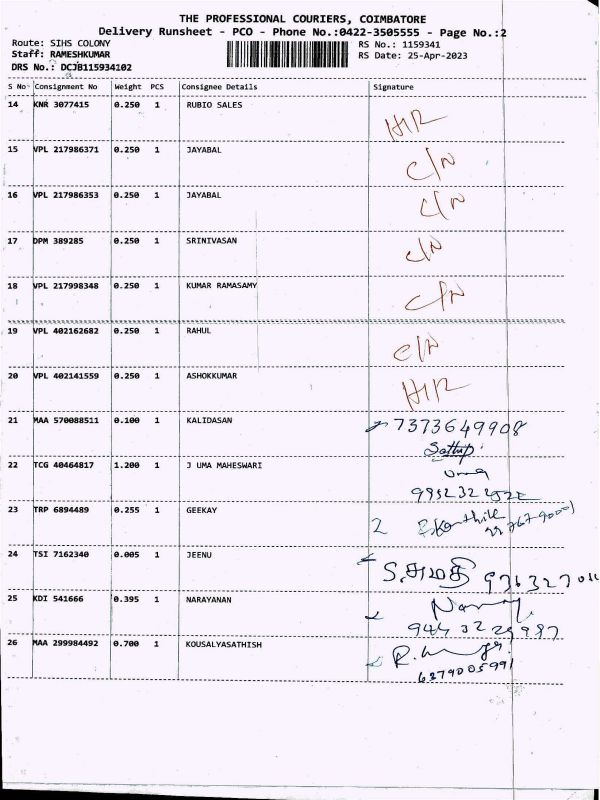 THE PROFESSIONAL COURIERS, COIMBATORE
Delivery Runsheet - PCO - Phone No.:0422-3505555 - Page No.:2
Route: SIHS COLONY RS No.: 1159341
Staff: RAMESHKUMAR RS Date: 25-Apr-2023
DRS No.: DCJB115934102
S No Consignment No Weight PCS Consignee Details Signature
14 KNR 3077415 0.250 1 RUBIO SALES
H/R
15 VPL 217986371 0.250 1 JAYABAL
C/N
16 VPL 217986353 0.250 1 JAYABAL
C/N
17 DPM 389285 0.250 1 SRINIVASAN
C/N
18 VPL 217998348 0.250 1 KUMAR RAMASAMY
C/N
19 VPL 402162682 0.250 1 RAHUL
C/N
20 VPL 402141559 0.250 1 ASHOKKUMAR
H/R
21 MAA 570088511 0.100 1 KALIDASAN
7373649908
22 TCG 40464817 1.200 1 J UMA MAHESWARI
Uma
23 TRP 6894489 0.255 1 GEEKAY
24 TSI 7162340 0.005 1 JEENU
S.சுமதி
25 KDI 541666 0.395 1 NARAYANAN
26 MAA 299984492 0.700 1 KOUSALYASATHISH
6379005991